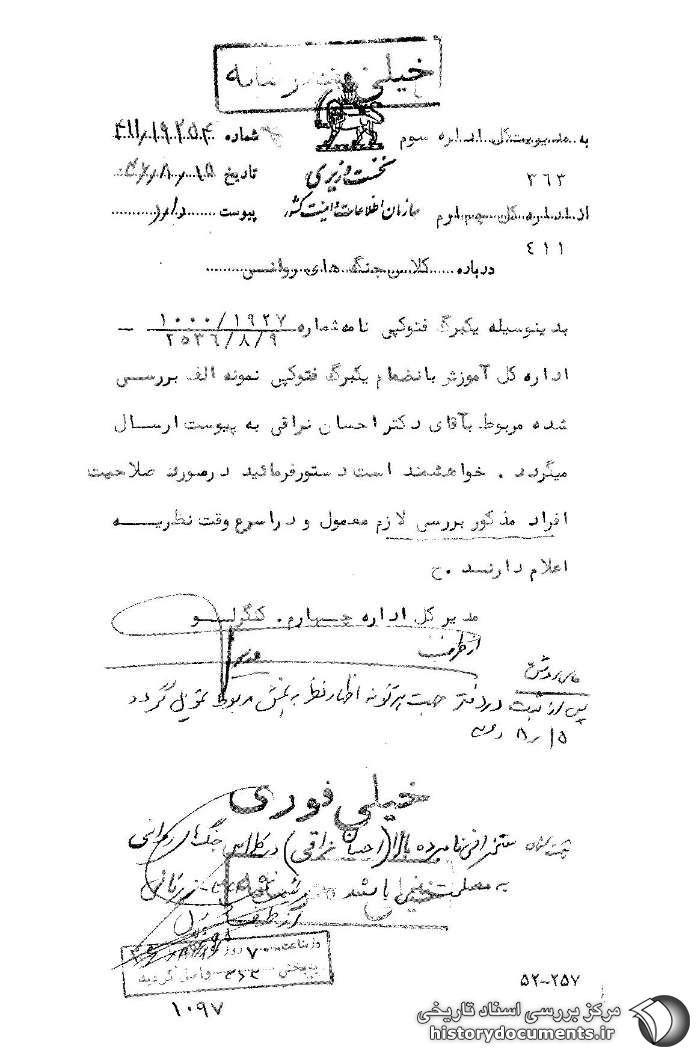 خیلی محرمانه
به مدیریت کل اداره سوم
شماره
۳۶۳
نخست وزیری
تاریخ
از اداره کل چهارم
سازمان اطلاعات و امنیت کشور
پیوست دارد
۴۱۱
درباره کلاس جنگ های روانی
بدینوسیله یکبرگ فتوکپی نامه شماره ۱۰۰۰/۱۹۲۷ –
۲۵۳۶/۸/۹
اداره کل آموزش بانضمام یکبرگ فتوکپی نمونه الف بررسی
شده مربوط بآقای دکتر احسان نراقی به پیوست ارسال
میگردد . خواهشمند است دستورفرمائید درصورت صلاحیت
افراد مذکور بررسی لازم معمول و دراسرع وقت نظریه
اعلام دارند .ح
مدیر کل اداره چهارم. کنگرلو
از طرف
پس از ثبت در دفتر جهت هرگونه اظهار نظر به بخش مربوط تحویل گردد
خیلی فوری
سخنرانی نامبرده بالا (احسان نراقی) در کلاس جنگهای روانی
به مصلحت نمی باشد
از طرف
۳۶۳ واصل گردید
۱۰۹۷
۵۲-۲۵۷
مرکز بررسی اسناد تاریخی
historydocuments.ir